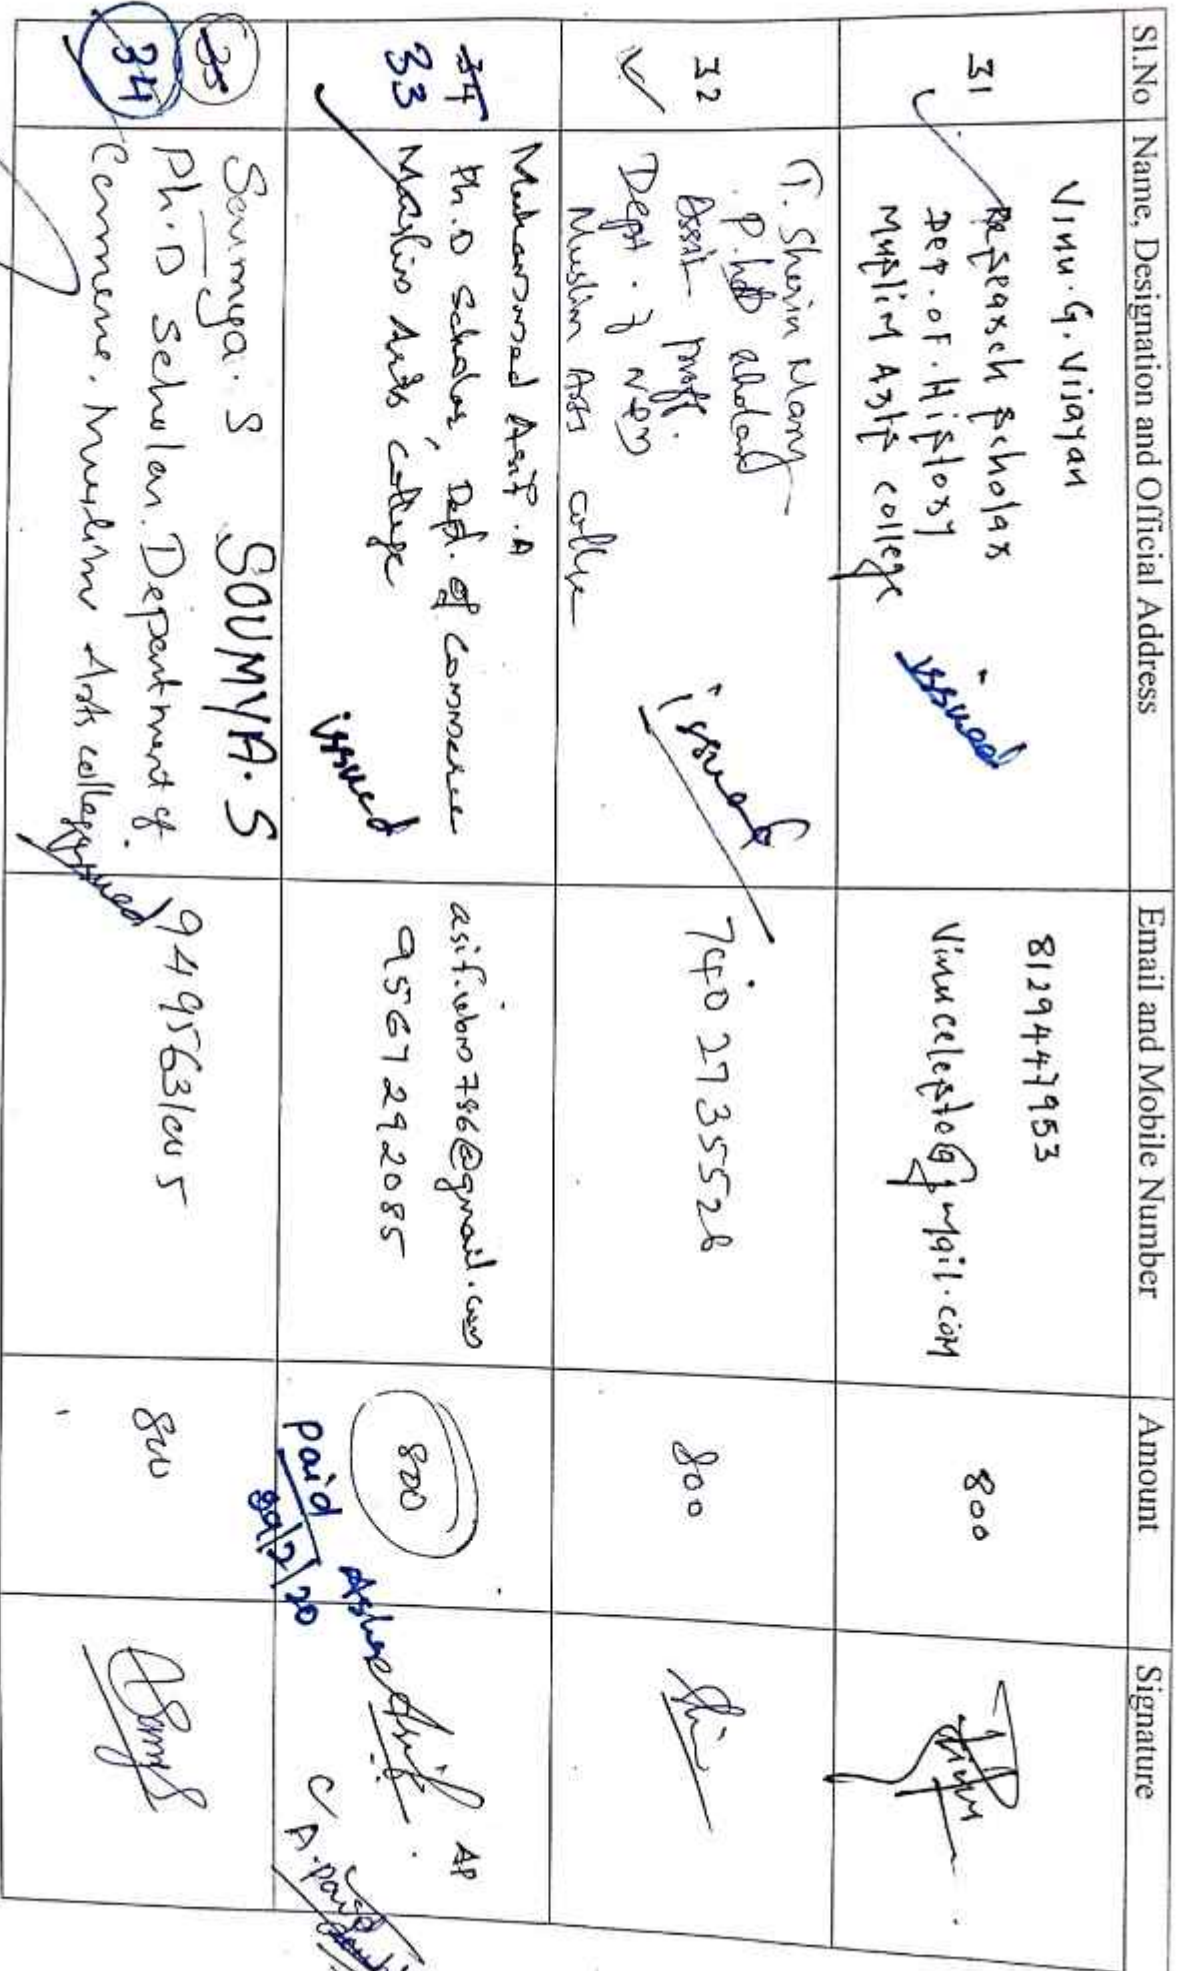 Sl.No Name, Designation and Official Address Email and Mobile Number Amount Signature
31
Vinu.G.Vijayan
Research Scholar
Dep.of.History
Muslim Arts college
issued
8129447953
800
32
T. Sherin Mary
Asst Proff.
Muslim Arts college
issued
7402735526
800
34
33
Muhammed Asif.A
Ph.D Scholar, Dept. of Commerce
Muslim Arts College
issued
9567292085
800
paid
35
34
Soumya.S SOUMYA.S
Ph.D Scholar. Department of
Commerce. Muslim Arts college
issued
800